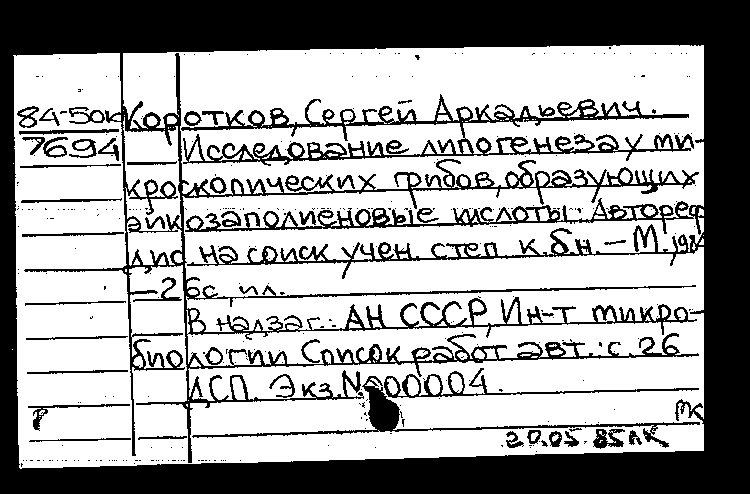 84-50к Коротков, Сергей Аркадьевич.
7694 Исследование липогенеза у ми-
кроскопических грибов, образующих
эйкозаполиеновые кислоты: Автореф
дис. на соиск учен. степ к.б.н. – М.,
– 26с, ил.
В надзаг.: АН СССР, Ин-т микро-
биологии Список работ авт.: с. 26
ДСП. Экз. № 00004.
МК
20.05 85